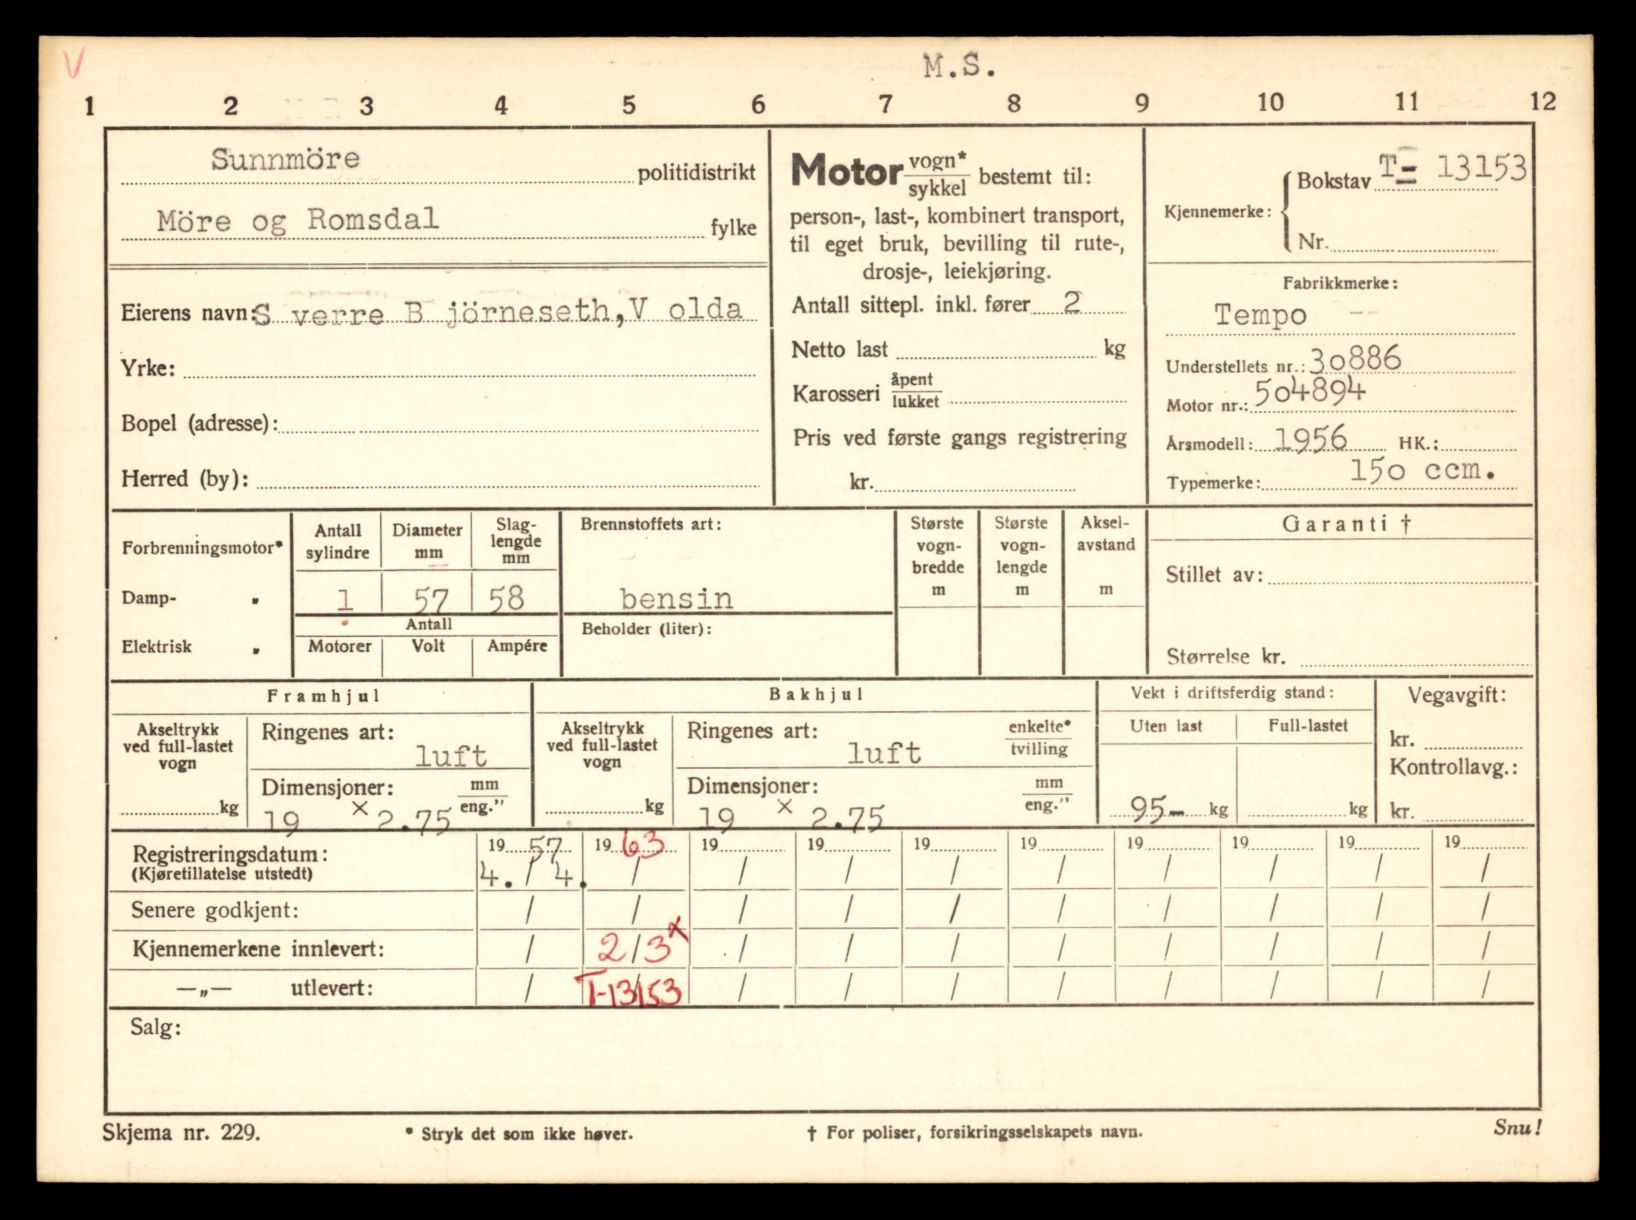 V
M.S.
1 2 3 4 5 6 7 8 9 10 11 12
Sunnmöre politidistrikt
Möre og Romsdal fylke
Eierens navn: S verre B jörneseth, V olda
Yrke:
Bopel (adresse):
Herred (by):
Motor vogn* / sykkel bestemt til:
person-, last-, kombinert transport,
til eget bruk, bevilling til rute-,
drosje-, leiekjøring.
Antall sittepl. inkl. fører 2
Netto last kg
Karosseri åpent / lukket
Pris ved første gangs registrering
kr.
Kjennemerke: Bokstav T- 13153
Nr.
Fabrikkmerke:
Tempo
Understellets nr.: 30886
Motor nr.: 504894
Årsmodell: 1956 HK.:
Typemerke: 150 ccm.
Forbrenningsmotor*
Damp- "
Elektrisk "
Antall sylindre
Diameter mm
Slag-lengde mm
1 57 58
Antall
Motorer Volt Ampére
Brennstoffets art:
bensin
Beholder (liter):
Største vogn-bredde m
Største vogn-lengde m
Aksel-avstand m
Garanti †
Stillet av:
Størrelse kr.
Framhjul
Akseltrykk ved full-lastet vogn
kg
Ringenes art:
luft
Dimensjoner: mm / eng."
19 x 2.75
Bakhjul
Akseltrykk ved full-lastet vogn
kg
Ringenes art: enkelte* / tvilling
luft
Dimensjoner: mm / eng."
19 x 2.75
Vekt i driftsferdig stand:
Uten last Full-lastet
95- kg kg
Vegavgift:
kr.
Kontrollavg.:
kr.
Registreringsdatum: 19 57 19 63 19 19 19 19 19 19 19 19
(Kjøretillatelse utstedt) 4. / 4. / / / / / / / / /
Senere godkjent: / / / / / / / / / /
Kjennemerkene innlevert: / 2/3 x / / / / / / / /
—„— utlevert: / T-13153 / / / / / / / /
Salg:
Skjema nr. 229.
* Stryk det som ikke høver.
† For poliser, forsikringsselskapets navn.
Snu!